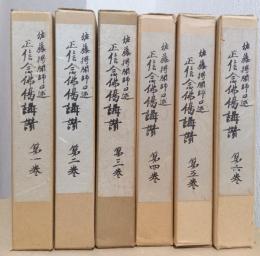 佐藤得聞師口述
正信念佛偈講讃
第一巻
佐藤得聞師口述
正信念佛偈講讃
第二巻
佐藤得聞師口述
正信念佛偈講讃
第三巻
佐藤得聞師口述
正信念佛偈講讃
第四巻
佐藤得聞師口述
正信念佛偈講讃
第五巻
佐藤得聞師口述
正信念佛偈講讃
第六巻